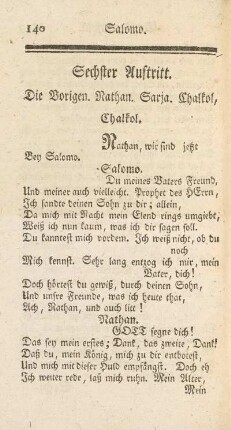 140 Salomo.
Sechster Auftritt.
Die Vorigen. Nathan. Sarja. Chalkol,
Chalkol.
Nathan, wir sind jetzt
Bey Salomo.
Salomo.
Du meines Vaters Freund,
Und meiner auch vielleicht. Prophet des HErrn,
Ich sandte deinen Sohn zu dir; allein,
Da mich mit Macht mein Elend rings umgiebt,
Weiß ich nun kaum, was ich dir sagen soll.
Du kanntest mich vordem. Ich weiß nicht, ob du
noch
Mich kennst. Sehr lang entzog ich mir, mein
Vater, dich!
Doch hörtest du gewiß, durch deinen Sohn,
Und unsre Freunde, was ich heute that,
Ach, Nathan, und auch litt!
Nathan.
GOTT segne dich!
Das sey mein erstes; Dank, das zweite, Dank!
Daß du, mein König, mich zu dir entbotest,
Und mich mit dieser Huld empfängst. Doch eh
Ich weiter rede, laß mich ruhn. Mein Alter,
Mein